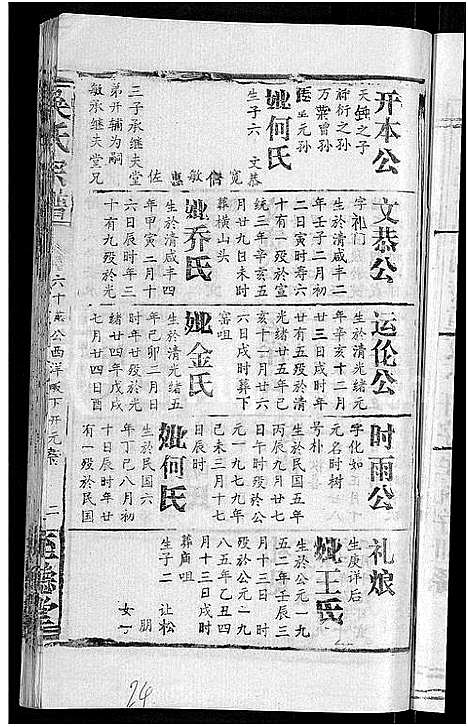 开本公
天钟之子
衍之孙
万叶曾孙
元孙
妣何氏
生子六 文恭
宽 信 敏 惠 佐
三子承继夫堂
弟开辅为嗣
敏承继夫堂兄
文恭公
字礼门
生於清咸丰二
年壬子二月初
二日寅时寿六
十有一殁於宣
统三年辛亥五
月廿九日未时
葬横山头
妣乔氏
生於清咸丰四
年甲寅二月十
六日辰时年三
十有九殁於光
运伦公
生於清光绪元
年辛亥十二月
廿三日戌时年
廿有五殁於清
光绪廿五年乙
亥十一月廿六
日戌时葬下
窑咀
妣金氏
生於清光绪五
年己卯二月日
时年廿殁於光
绪廿四年戊戌
七月廿四日酉
时雨公
字化如
元名时树
号朴
生於民国五年
丙辰九月廿七
日辰时殁於公
元一九七九年
己未三月十七
日辰时
妣何氏
生於民国六
年丁巳八月初
十日辰时年三
有一殁於民国
礼娘
生庚详后
妣王氏
生於公元一九
五二年壬辰三
月十三日 时
殁於公元一九
八五年乙丑四
月十三日 时
葬庙咀
生子二 让松
朋
女一
吴氏宗谱
六十 公西洋坂下开元
二
24